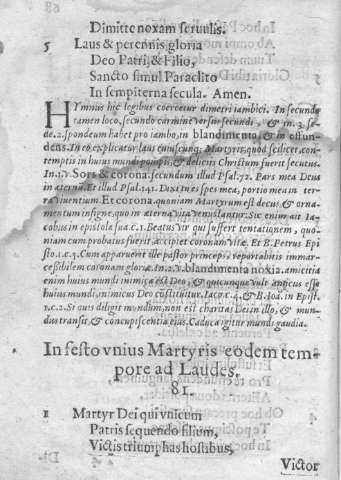 Dimitte noxam seruulis.
5 Laus & perennis gloria
Deo Patri, & Filio,
Sancto simul Paraclito
In sempiterna secula. Amen.
HYmnus hic legibus coercetur dimetri iambici. In secundo
tamen loco, secundo carmine versus secundi. & in. 3. se-
de. 2. spondeum habet pro iambo, in blandimento, & in effun-
dens. In eo explicatur laus cuiuscunq; Martyris, quod scilicet con-
temptis in huius mundi pompis, & delicijs Christum fuerit secutus.
In. 1. v. Sors & corona, secundum illud Psal. 72. Pars mea Deus
in æternũ. Et illud Psal. 141. Dixi tu es spes mea, portio mea in ter-
ra viuentium. Et corona, quoniam Martyrum est decus, & or-
namentum insigne, quo in æterna vita venustantur. Sic enim ait Ia-
cobus in epistola sua. c. 1. Beatus vir qui suffert tentationem, quo-
niam cum probatus fuerit accipiet coronam vitæ. Et B. Petrus Epi
sto. 1. c. 5. Cum apparuerit ille pastor princeps, reportabitis immar-
cessibilem coronam gloriæ. In. 2. v. blandimenta noxia. amicitia
enim huius mundi inimica est Deo, & quicunque vult amicus esse
huius mundi, inimicus Deo cõstituitur. Iaco. c. 4. & B. Ioã. in Epist.
1. c. 2. Si quis diligit mundum, non est charitas Dei in illo, & mun-
dus transit, & concupiscentia eius. Caduca igitur mundi gaudia.
In festo vnius Martyris eodem tem-
pore ad Laudes.
81.
1 Martyr Dei qui vnicum
Patris sequendo filium,
Victis triumphas hostibus,
Victor